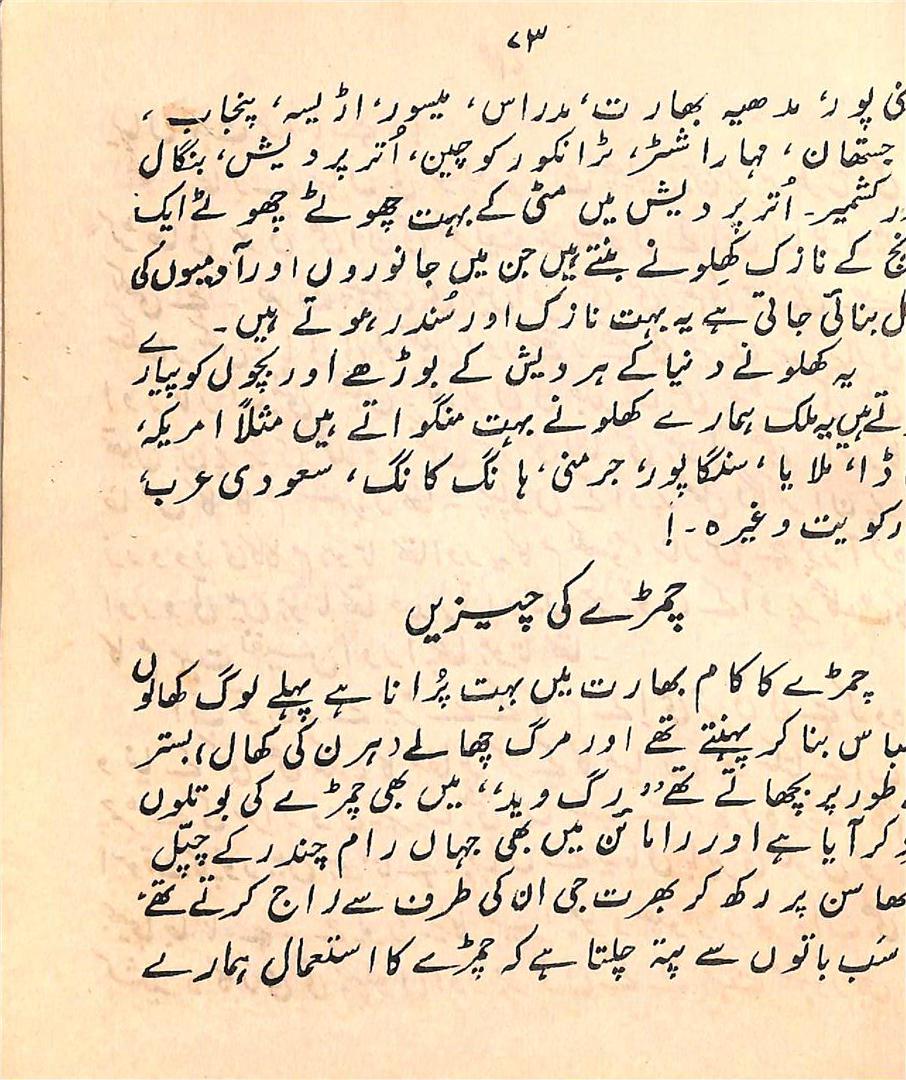 ۷۳
پور، مدھیہ بھارت، مدراس، میسور، اڑیسہ، پنجاب،
جستھان، مہاراشٹر، ٹرانکور کوچین، اُتر پردیش، بنگال
کشمیر۔ اُتر پردیش میں مٹی کے بہت چھوٹے چھوٹے ایک
کے نازک کھِلونے بنتے ہیں جن میں جانوروں اور آدمیوں کی
بنائی جاتی ہے یہ بہت نازک اور سُندر ہوتے ہیں۔
یہ کھلونے دنیا کے ہر دیش کے بوڑھے اور بچوں کو پیارے
ہیں یہ ملک ہمارے کھلونے بہت منگواتے ہیں مثلاً امریکہ،
ڈا، ملایا، سنگاپور، جرمنی، ہانگ کانگ، سعودی عرب،
کویت وغیرہ۔!
چمڑے کی چیزیں
چمڑے کا کام بھارت میں بہت پُرانا ہے پہلے لوگ کھالوں
باس بنا کر پہنتے تھے اور مرگ چھالے (ہرن کی کھال) بستر
طور پر بچھاتے تھے "رگ وید" میں بھی چمڑے کی بوتلوں
کر آیا ہے اور رامائن میں بھی جہاں رام چندر کے چپّل
ھاسن پر رکھ کر بھرت جی ان کی طرف سے راج کرتے تھے،
سَب باتوں سے پتہ چلتا ہے کہ چمڑے کا استعمال ہمارے